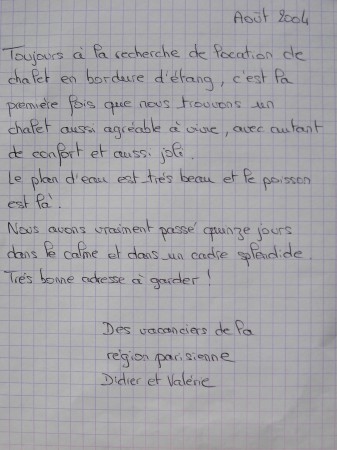 Août 2004
Toujours à la recherche de location de
chalet en bordure d'étang, c'est la
première fois que nous trouvons un
chalet aussi agréable à vivre, avec autant
de confort et aussi joli.
Le plan d'eau est très beau et le poisson
est là.
Nous avons vraiment passé quinze jours
dans le calme et dans un cadre splendide.
Très bonne adresse à garder !
Des vacanciers de la
région parisienne
Didier et Valérie